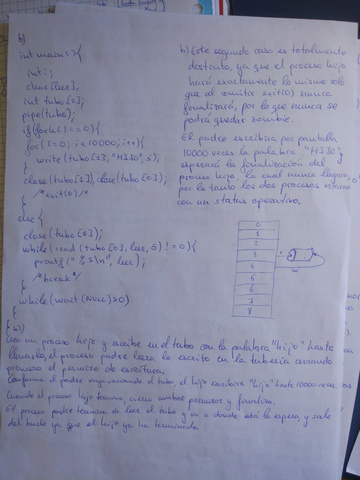 b)
int main(){
int i;
char leer[];
int tubo[2];
pipe(tubo);
if(fork()==0){
for(i=0; i<10000; i++){
write(tubo[1], "HIJO", 5);
}
close(tubo[1]), close(tubo[0]),
/*exit(0)*/
}
else {
close(tubo[1]);
while(read(tubo[0], leer, 5) != 0){
printf("%s\n", leer);
/*break*/
}
while(wait(NULL)>0)
}
b) Este segundo caso es totalmente
destinto, ya que el proceso hijo
hará exactamente lo mismo solo
que al omitir exit(0) nunca
finalizará, por lo que nunca se
podrá quedar zombie.
El padre escribira por pantalla
10000 veces la palabra "HIJO" y
esperará la finalización del
proceso hijo, la cual nunca llegara,
por lo tanto los dos procesos estaran
con un status operativo.
0
1
2
3
4
5
6
7
8
a)
Crea un proceso hijo y escribe en el tubo con la palabra "hijo" hasta
llenarlo, el proceso padre leera lo escrito en la tuberia cerrando
primero el permiso de escritura.
Conforme el padre vaya vaciando el tubo, el hijo escribira "hijo" hasta 10000 veces
Cuando el proceso hijo termina, cierra ambos permisos y finaliza.
El proceso padre termina de leer el tubo y va a donde está la espera, y sale
del bucle ya que el hijo ya ha terminado.